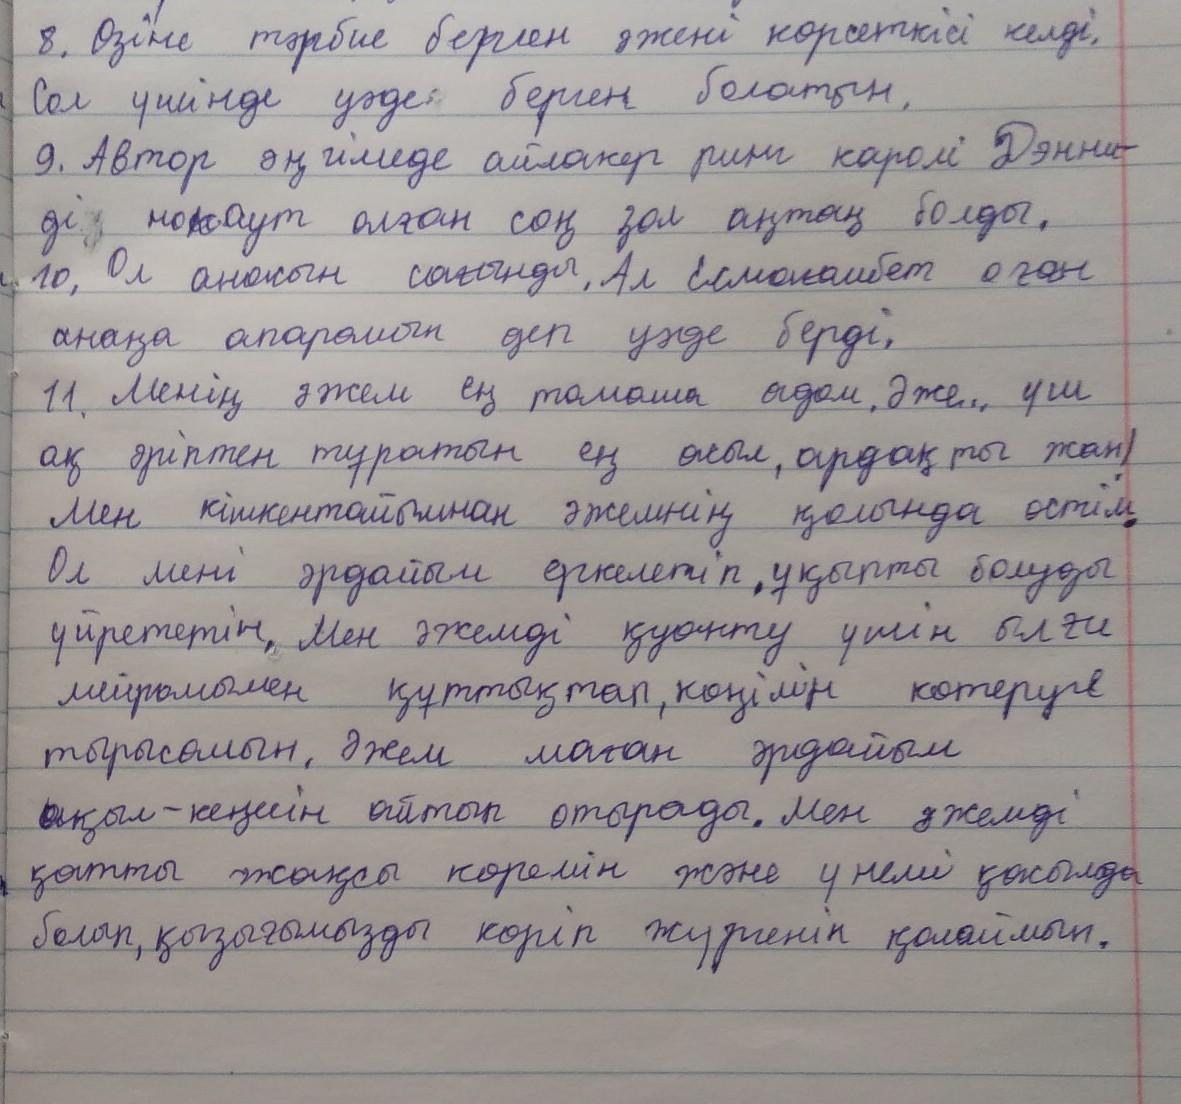 8. Өзіне тәрбие берген әжені көрсеткісі келді.
Сол үшінде уәде берген болатын.
9. Автор әңгімеде айлакер ринг каролі Дэнни-
ді нокаут алған соң зал аңтаң болды.
10. Ол анасын сағынды. Ал Есмағамбет оған
анаңа апарамын деп уәде берді.
11. Менің әжем ең тамаша адам. Әже.., үш
ақ әріптен тұратын ең асыл, ардақты жан!
Мен кішкентайымнан әжемнің қолында өстім.
Ол мені әрдайым еркелетіп, ұқыпты болуды
үйрететін. Мен әжемді қуанту үшін ылғи
мейрамымен құттықтап, көңілін көтеруге
тырысамын. Әжем маған әрдайым
ақыл-кеңесін айтып отырады. Мен әжемді
қатты жақсы көремін және үнемі қасымда
болып, қызығымызды көріп жүргенін қалаймын.